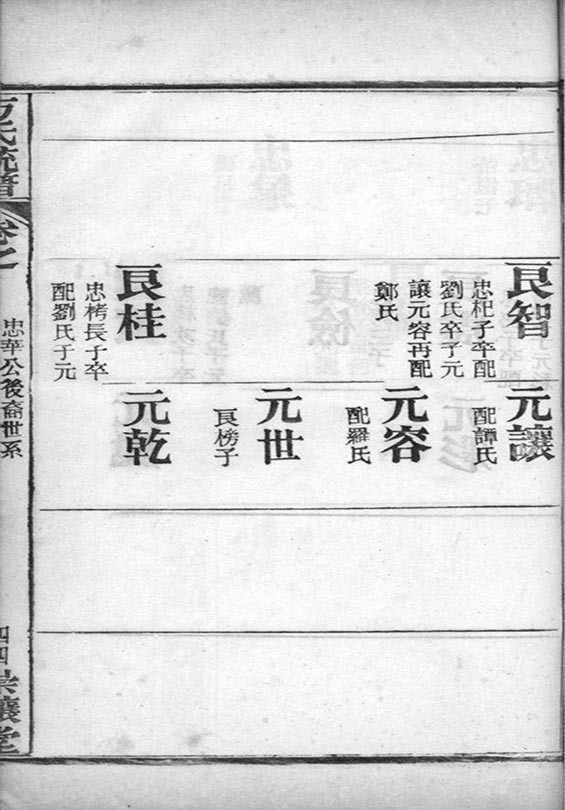 良智
忠杞子卒配
劉氏卒子元
讓元容再配
鄭氏
元讓
配譚氏
元容
配羅氏
元世
良榜子
良桂
忠栲長子卒
配劉氏子元
元乾
方氏統譜
卷之
忠華公後裔世系
四四
崇讓堂